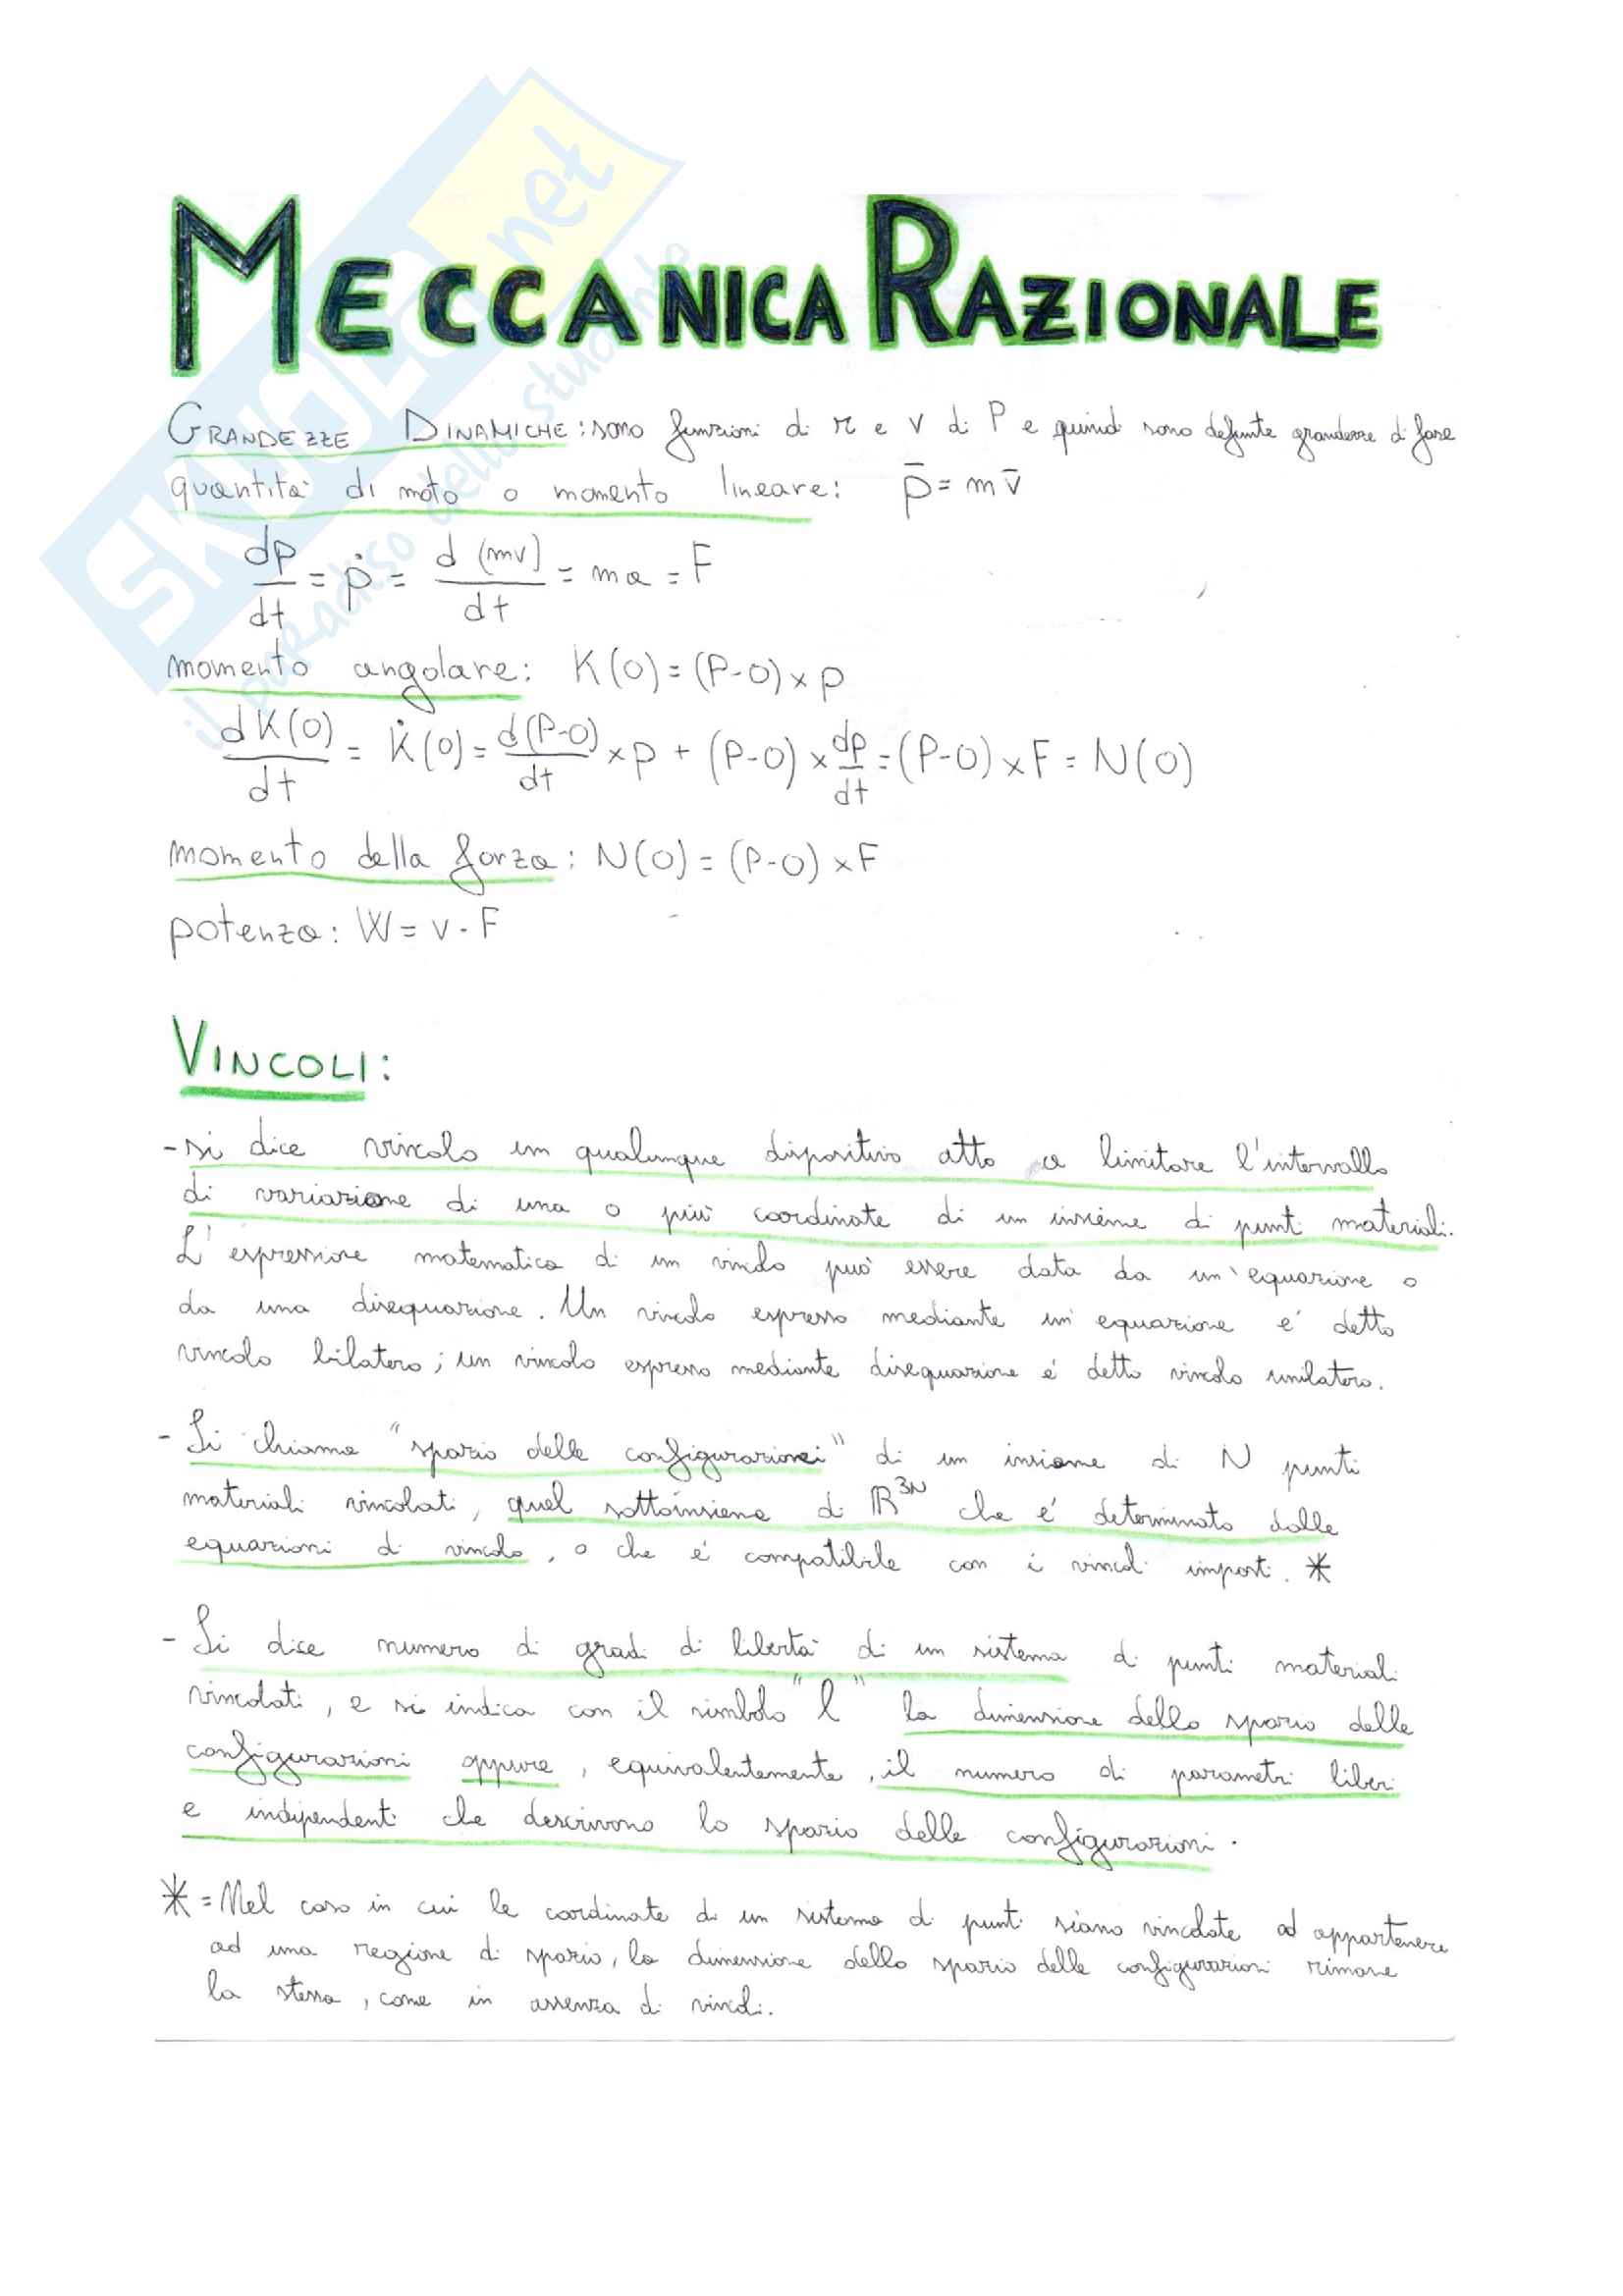 SKUOLA.net
il paradiso dello studente
MECCANICA RAZIONALE
GRANDEZZE DINAMICHE: sono funzioni di r e v di P e quindi sono definite grandezze di fase
quantità di moto o momento lineare: p̄ = m v̄
dp/dt = ṗ = d (mv)/dt = ma = F
momento angolare: K(O) = (P-O) × p
dK(O)/dt = K̇(O) = d(P-O)/dt × p + (P-O) × dp/dt = (P-O) × F = N(O)
momento della forza: N(O) = (P-O) × F
potenza: W = v · F
VINCOLI:
- si dice vincolo un qualunque dispositivo atto a limitare l'intervallo
di variazione di una o più coordinate di un insieme di punti materiali.
L'espressione matematica di un vincolo può essere data da un'equazione o
da una disequazione. Un vincolo espresso mediante un'equazione e' detto
vincolo bilatero; un vincolo espresso mediante disequazione é detto vincolo unilatero.
- Si chiama "spazio delle configurazioni" di un insieme di N punti
materiali vincolati, quel sottoinsieme di ℝ³ᴺ che e' determinato dalle
equazioni di vincolo, o che e' compatibile con i vincoli imposti. *
- Si dice numero di gradi di libertà di un sistema di punti materiali
vincolati, e si indica con il simbolo "l" la dimensione dello spazio delle
configurazioni oppure, equivalentemente, il numero di parametri liberi
e indipendenti che descrivono lo spazio delle configurazioni.
* = Nel caso in cui le coordinate di un sistema di punti siano vincolate ad appartenere
ad una regione di spazio, la dimensione dello spazio delle configurazioni rimane
la stessa, come in assenza di vincoli.